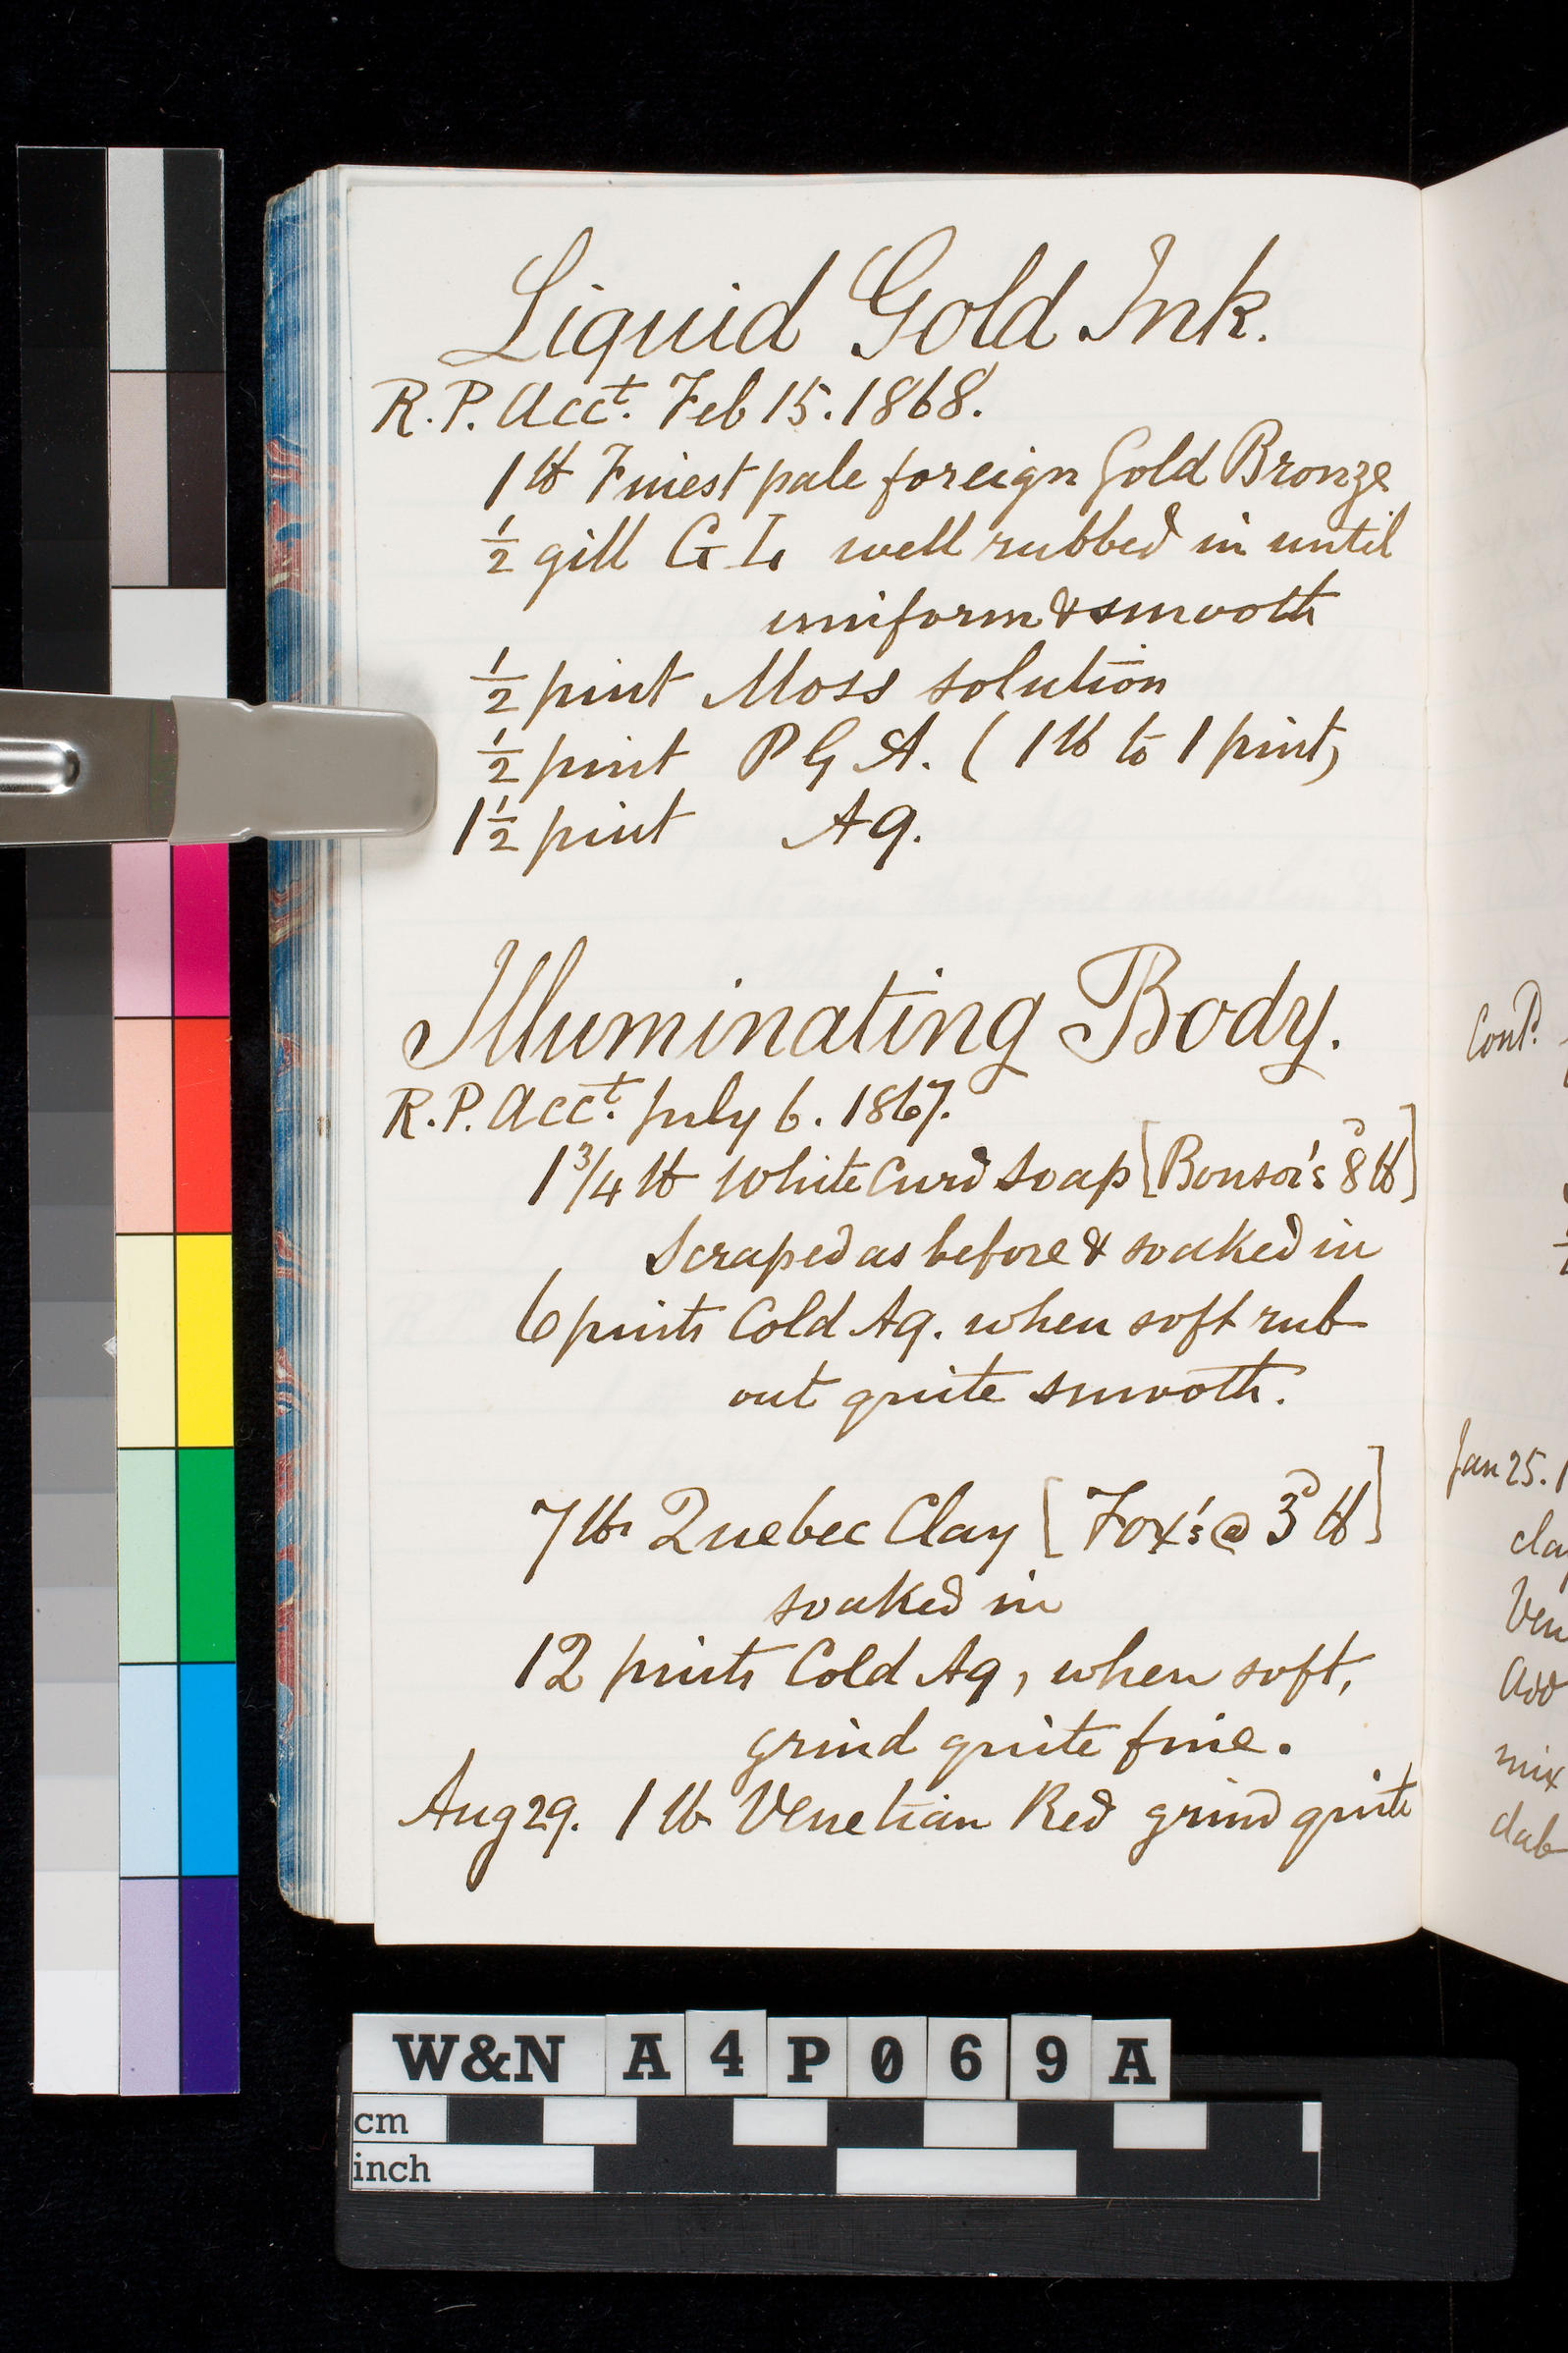 Liquid Gold Ink.
R.P. Acct. Feb 15. 1868.
1 lb Finest pale foreign Gold Bronze
½ gill G L well rubbed in until
uniform & smooth
½ pint Moss solution
½ pint P G A. (1 lb to 1 pint)
1½ pint Aq.
Illuminating Body.
R.P. Acct. July 6. 1867.
1¾ lb White Curd Soap [Bonsor's 8d lb]
Scraped as before & soaked in
6 pints Cold Aq. when soft rub
out quite smooth.
7 lbs Quebec Clay [Fox's @ 3d lb]
soaked in
12 pints Cold Aq, when soft,
grind quite fine.
Aug 29. 1 lb Venetian Red grind quite
Cont.
Jan 25.
cla
Ven
Add
mix
dab
W&N A4P069A
cm
inch